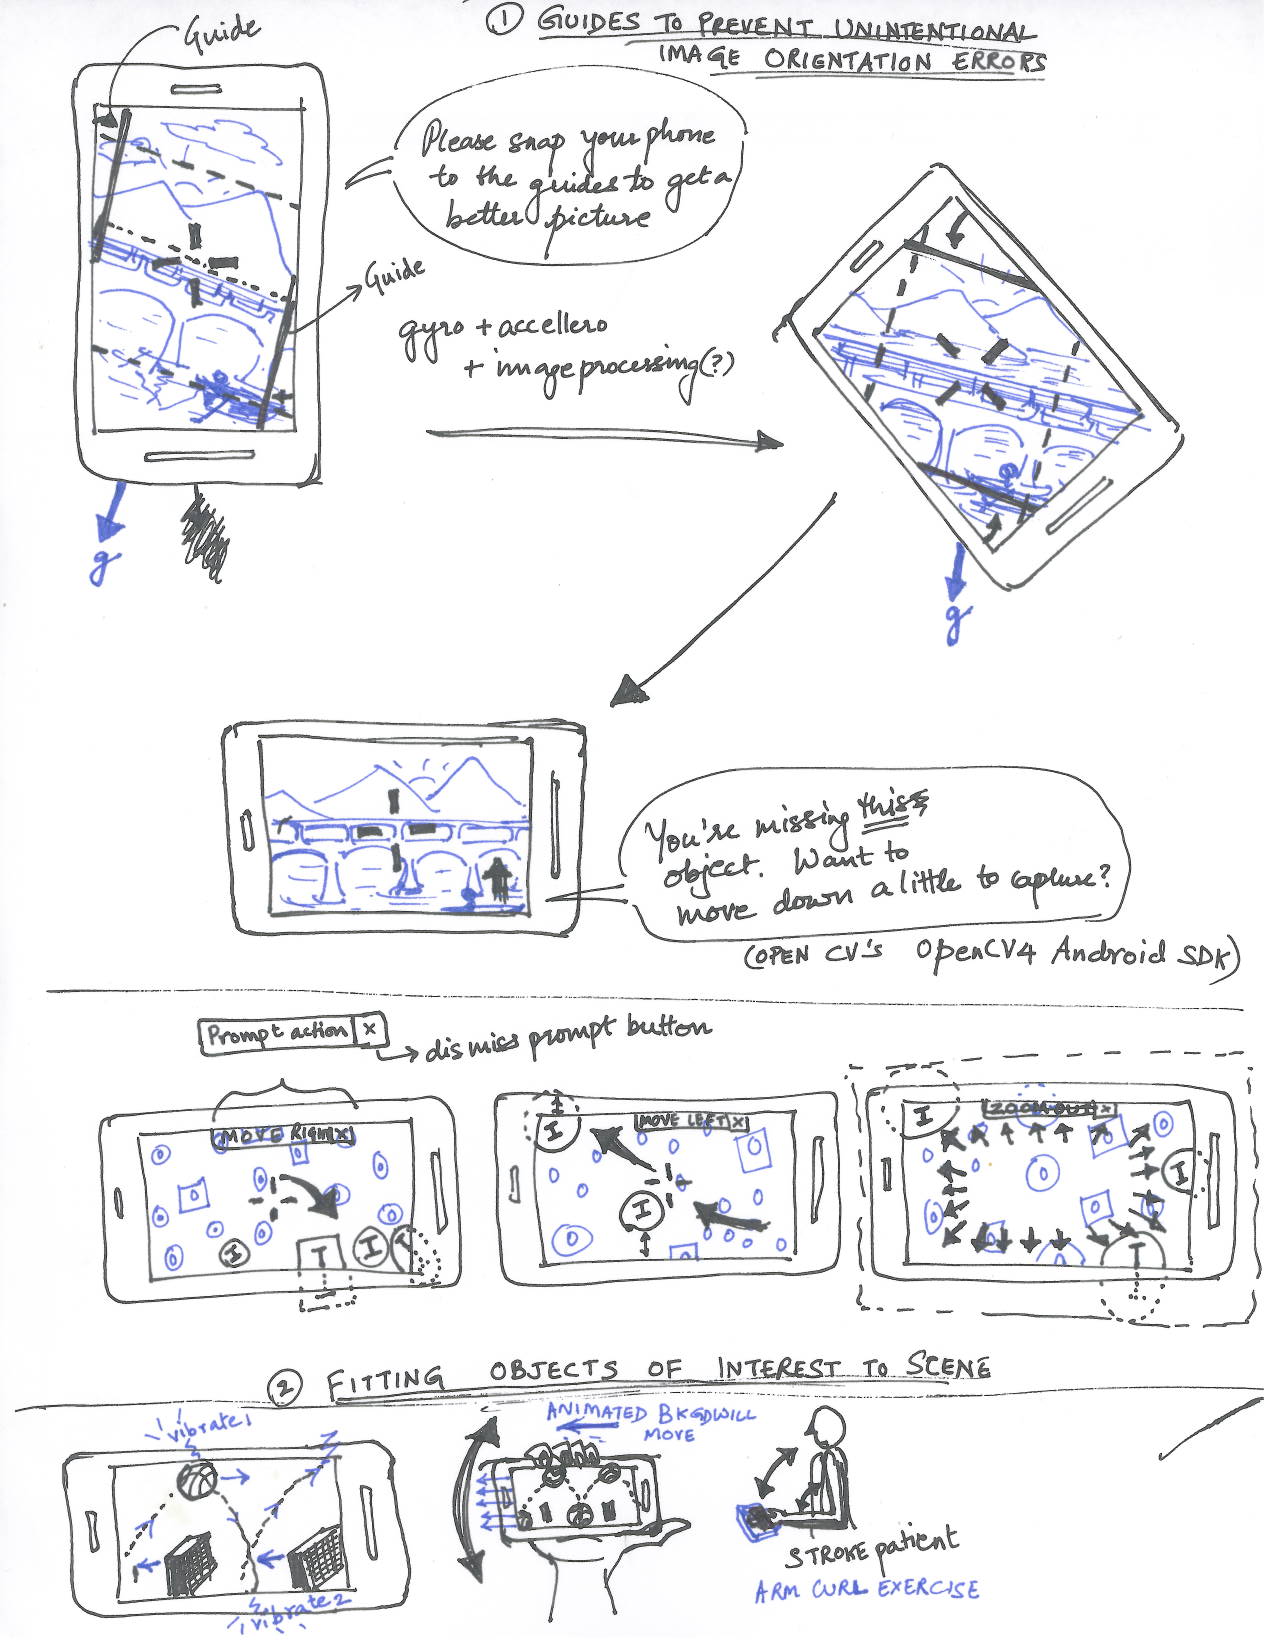 ① GUIDES TO PREVENT UNINTENTIONAL
IMAGE ORIENTATION ERRORS
Guide
Please snap your phone
to the guides to get a
better picture
Guide
gyro + accellero
+ image processing(?)
g
g
You're missing this
object. Want to
move down a little to capture?
(OPEN CV'S OpenCV4 Android SDK)
Prompt action x
dismiss prompt button
MOVE RIGHT x
MOVE LEFT x
ZOOM OUT x
I
T
I
T
I
I
I
I
T
② FITTING OBJECTS OF INTEREST TO SCENE
vibrate1
vibrate2
ANIMATED BKGDWILL
MOVE
STROKE patient
ARM CURL EXERCISE